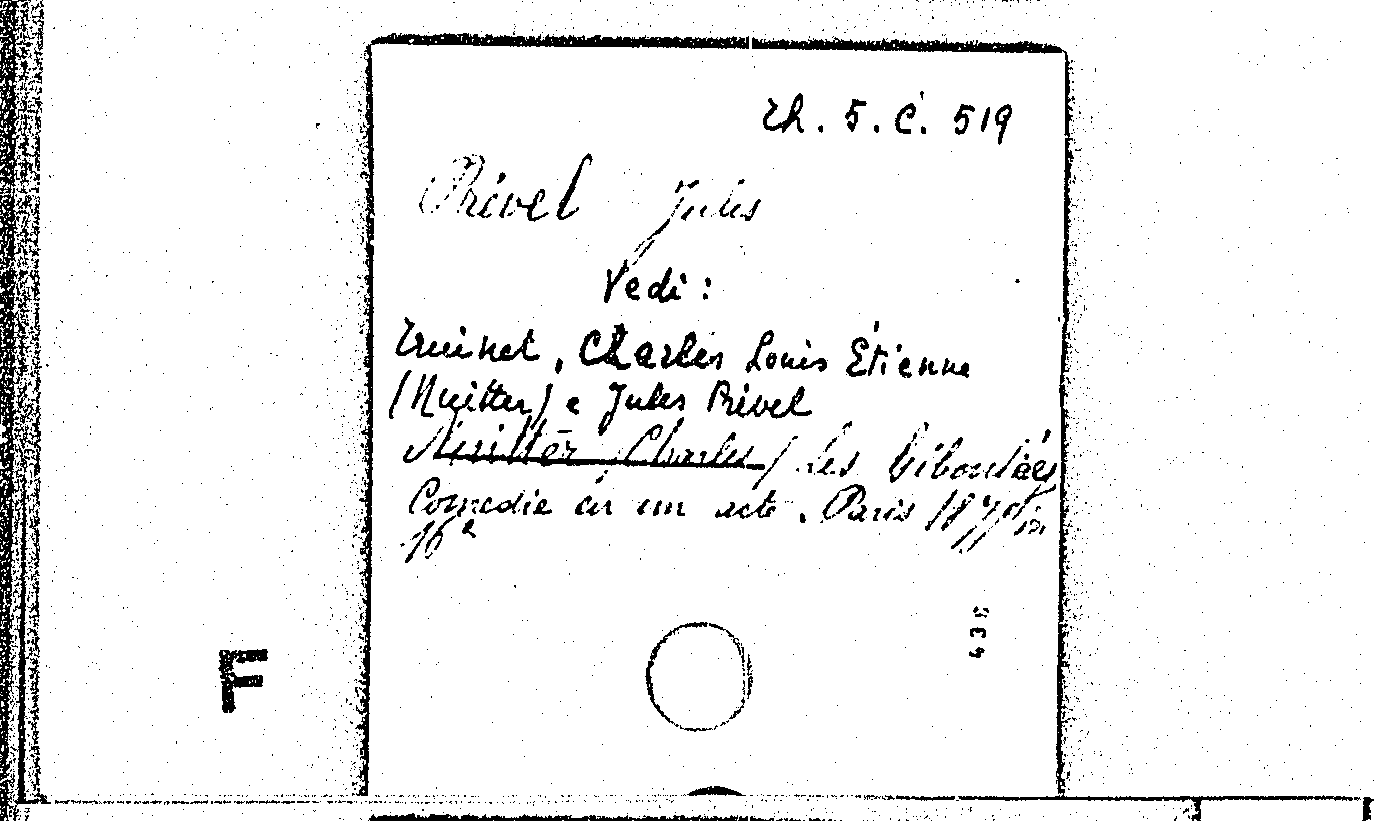 Th. 5. C. 519
Prével Jules
Vedi :
Truinet, Charles Louis Étienne
(Nuitter) e Jules Prével
Nuitter Charles / Les
Comedie en un acte. Paris in
16°
438
F